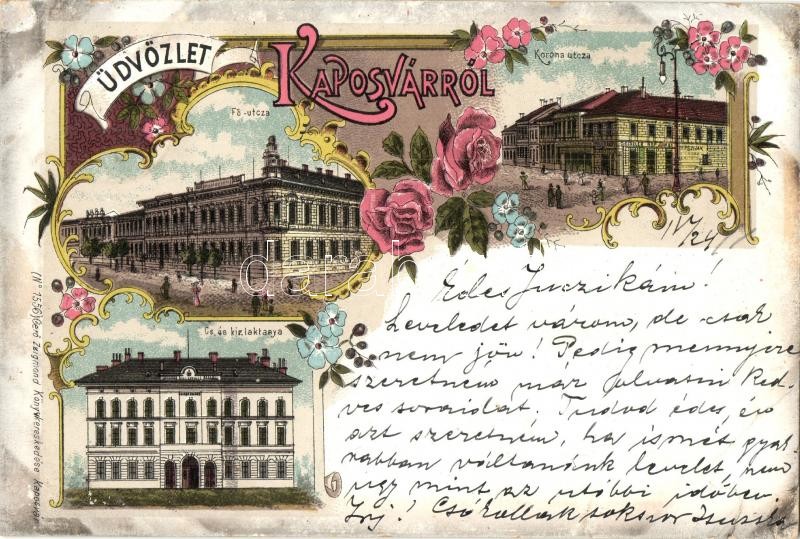 ÜDVÖZLET
KAPOSVÁRRÓL
Korona utcza
Fő-utcza
Cs. és kir. laktanya
(No 1556) Gerő Zsigmond Könyvkereskedése Kaposvár
IV/24
Édes Juczikám!
Leveledet várom, de csak
nem jön! Pedig mennyire
szeretném már olvasni ked-
ves soraidat. Tudod édes, én
azt szeretném, ha ismét gyak-
rabban váltanánk levelet, nem
úgy mint az utóbbi időben.
Irj! Csókollak sokszor
darabanth